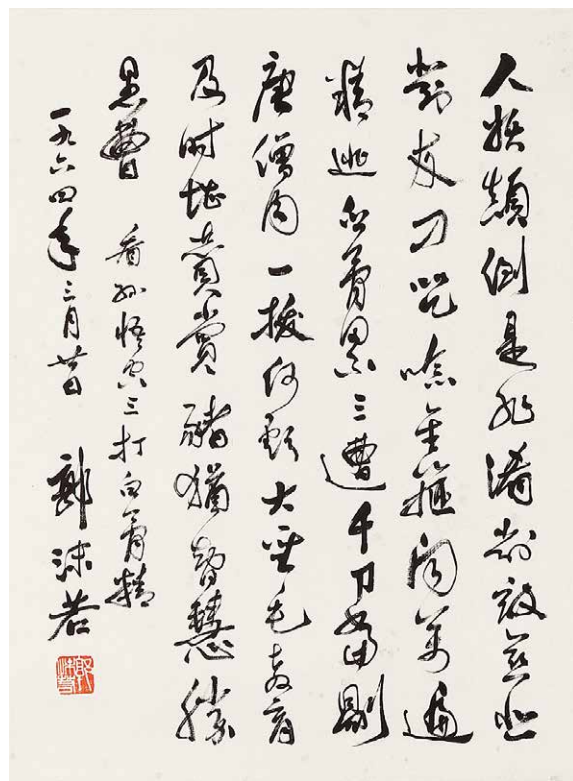 人妖顛倒是非淆對敵慈悲
對友刁咒唸金箍聞萬遍
精逃白骨累三遭千刀當剮
唐僧肉一拔何虧大聖毛教育
及时堪贊賞豬猶智慧勝
愚曹 看孫悟空三打白骨精
一九六四年三月廿日 郭沫若
郭沫若